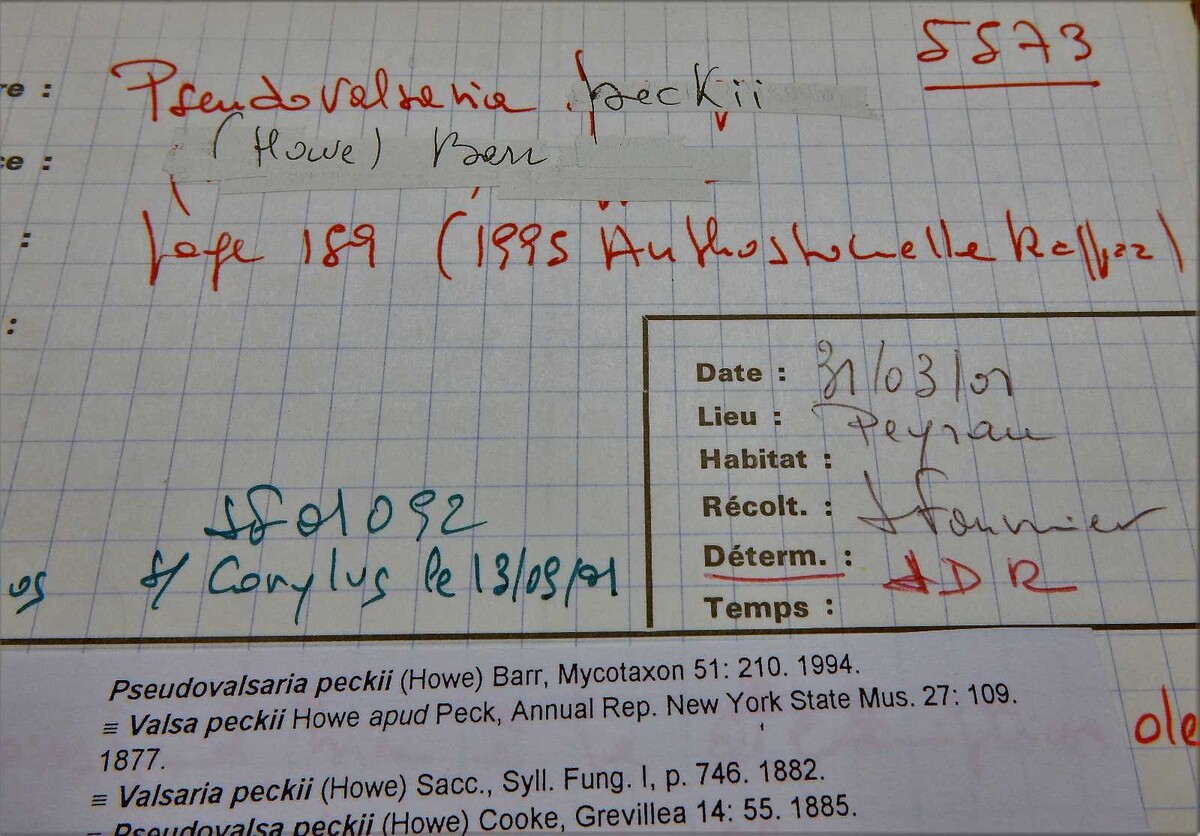 5573
re : Pseudovalsaria peckii
ce : (Howe) Barr
: page 189 (1995
:
Date : 31/03/01
Lieu : Peyrau
Habitat :
Récolt. : J Fournier
Déterm. : JDR
Temps :
JF 01092
os s/ Corylus le 13/09/01
Pseudovalsaria peckii (Howe) Barr, Mycotaxon 51: 210. 1994.
≡ Valsa peckii Howe apud Peck, Annual Rep. New York State Mus. 27: 109.
1877.
≡ Valsaria peckii (Howe) Sacc., Syll. Fung. I, p. 746. 1882.
Pseudovalsa peckii (Howe) Cooke, Grevillea 14: 55. 1885.
ole